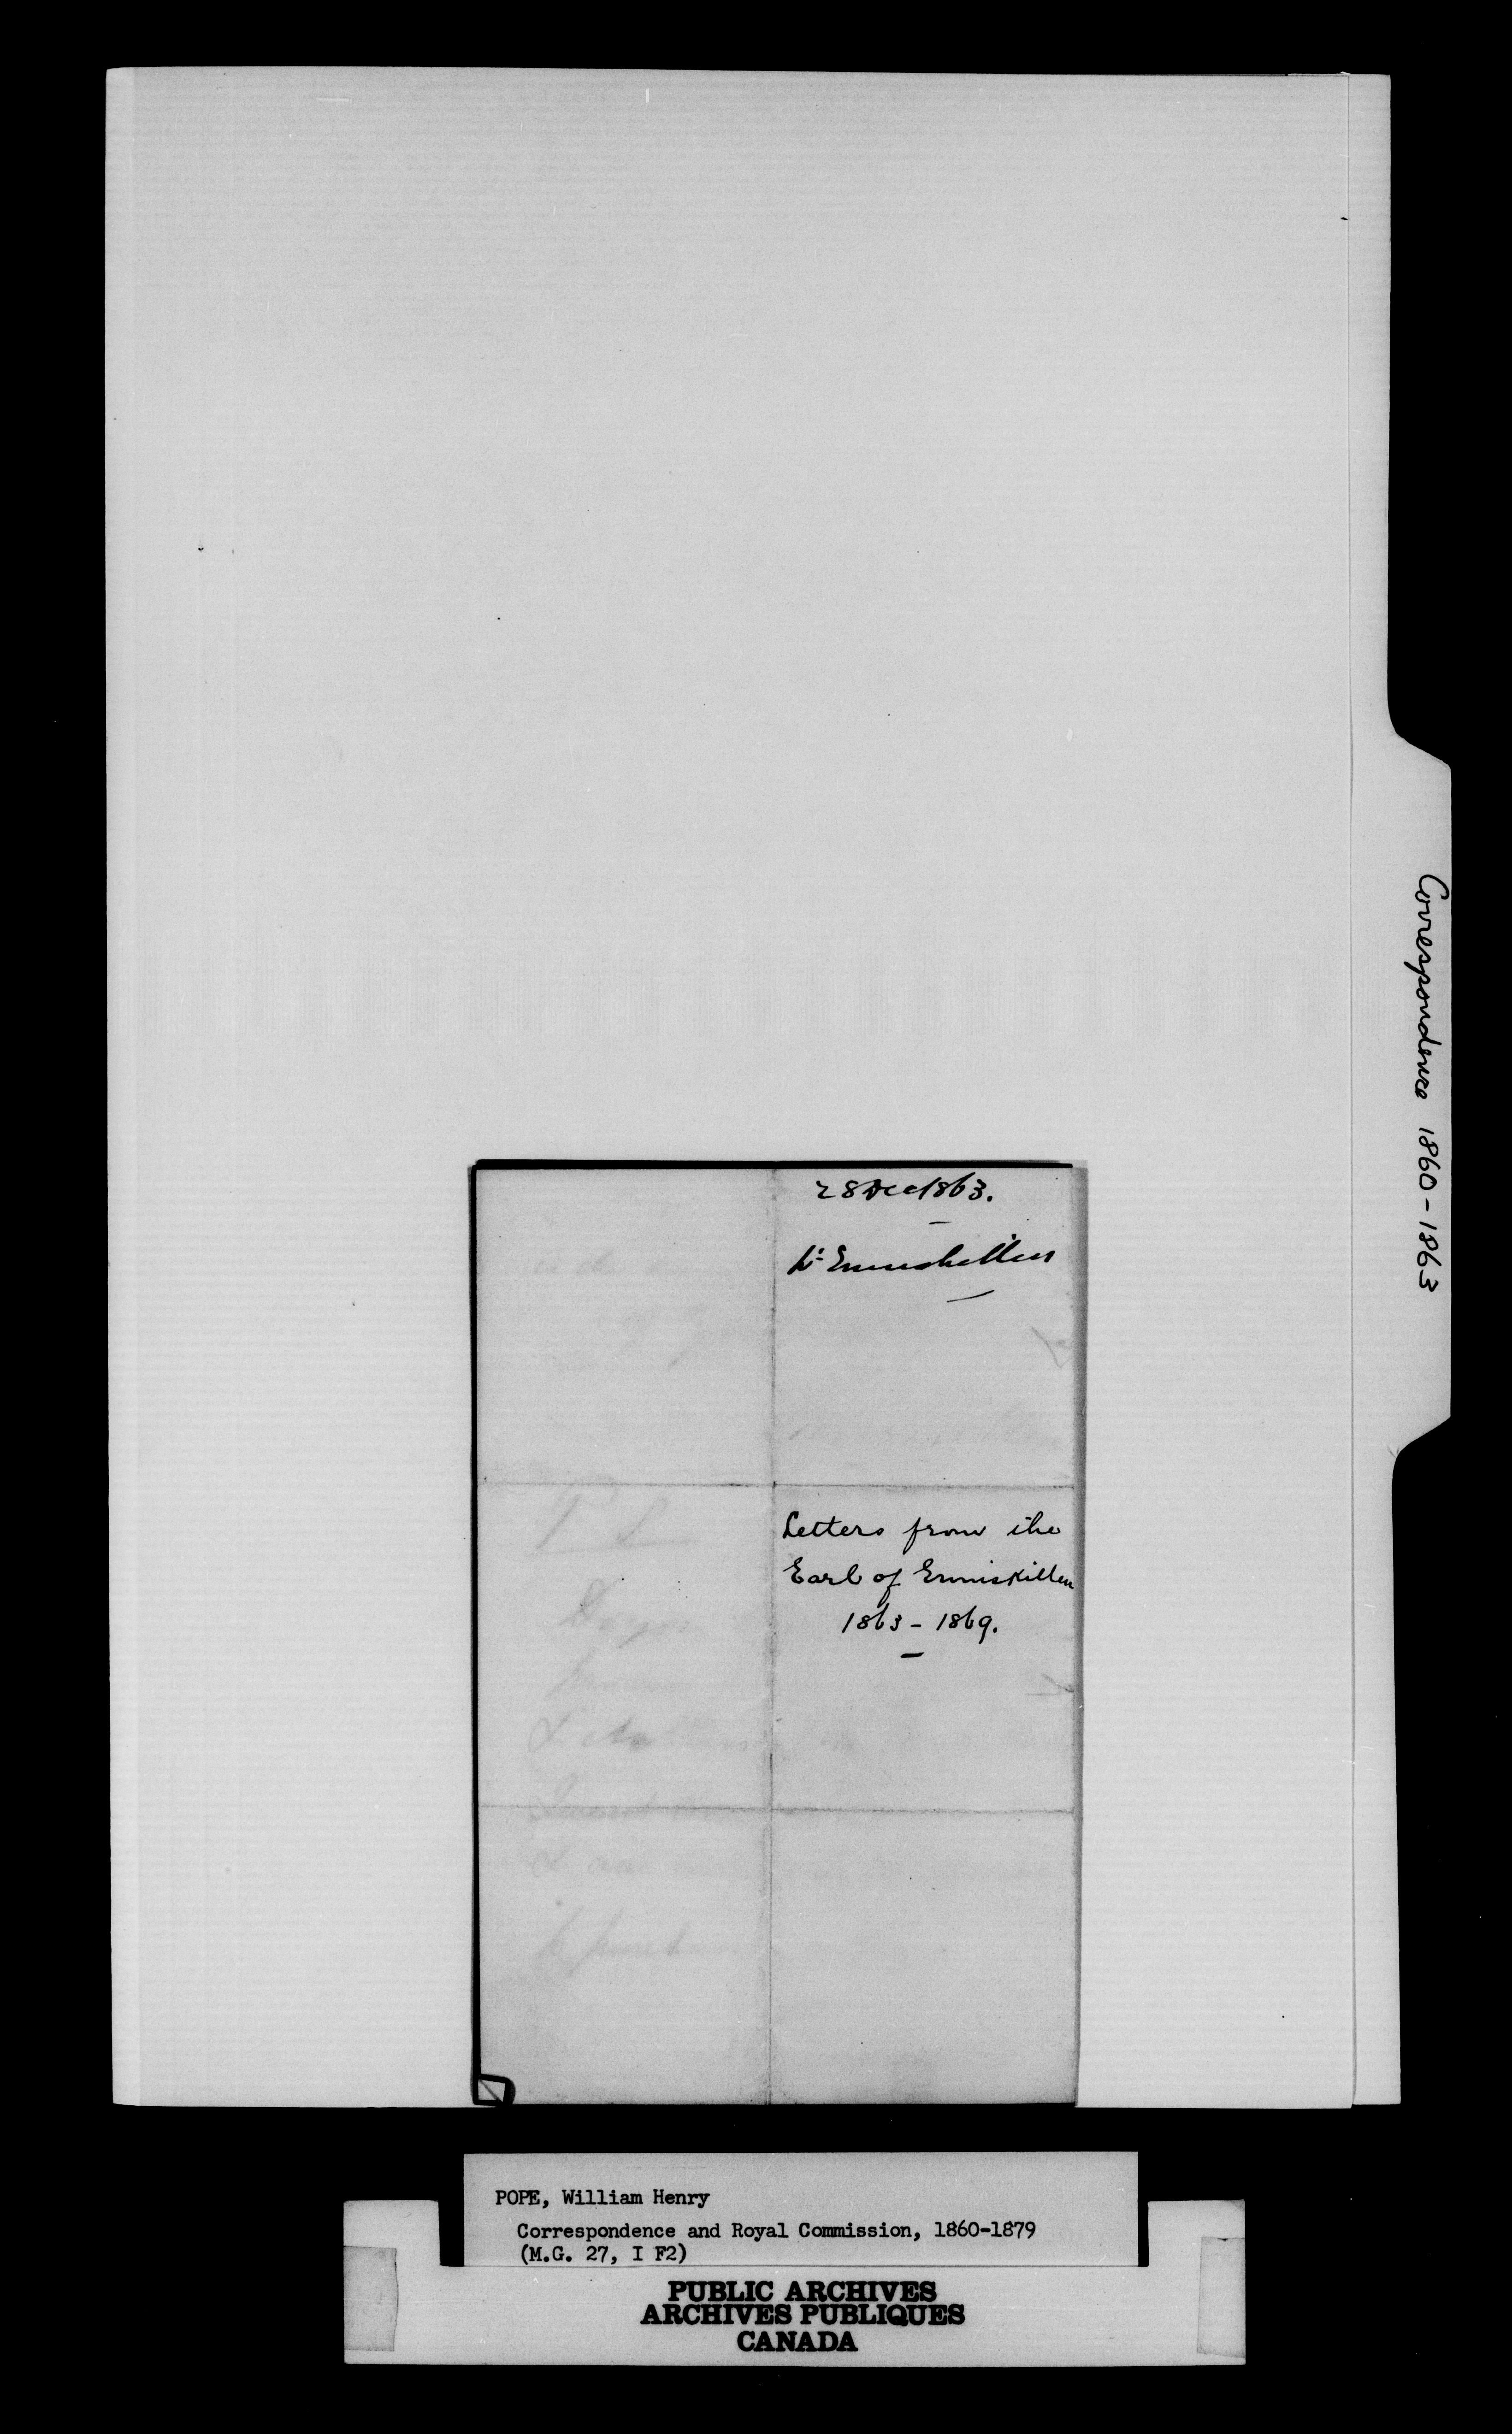 Correspondence 1860-1863
28 Dec 1863.
Ld Enniskillen
Letters from the
Earl of Enniskillen
1863 - 1869.
POPE, William Henry
Correspondence and Royal Commission, 1860-1879
(M.G. 27, I F2)
PUBLIC ARCHIVES
ARCHIVES PUBLIQUES
CANADA